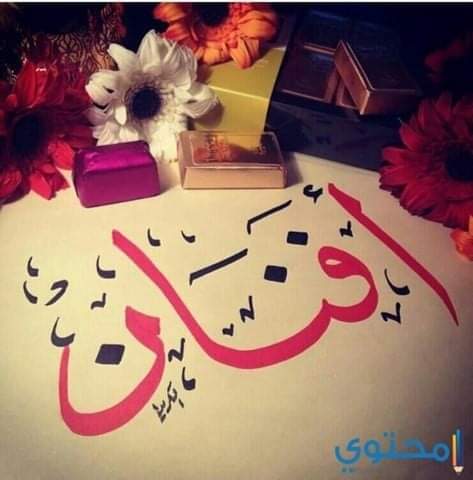 أفنان
محتوي